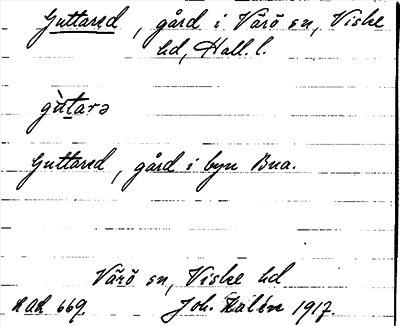 Guttared, gård i Värö sn, Viske
hd, Hall. l.
gùtarə
Guttared, gård i byn Bua.
Värö sn, Viske hd
669. Joh. Kalén 1917.